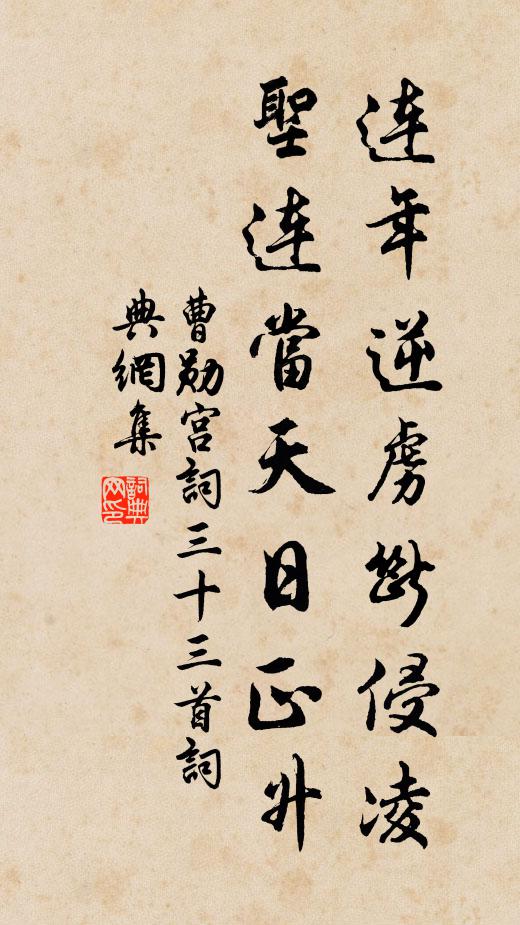 連年逆虜斷侵凌
聖連當天日正升
曹勛宮詞三十三首詞
典網集
詞典
网印